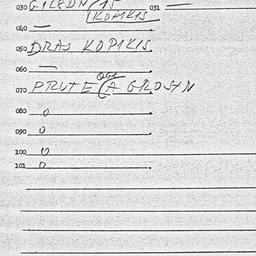 030 GILEDN/15 031 —
KOPIKIS
040 —
050 DRAJ KOPIKIS
060 —
070 PRUTE (A GROSYN
080 0
090 0
100 0
101 0